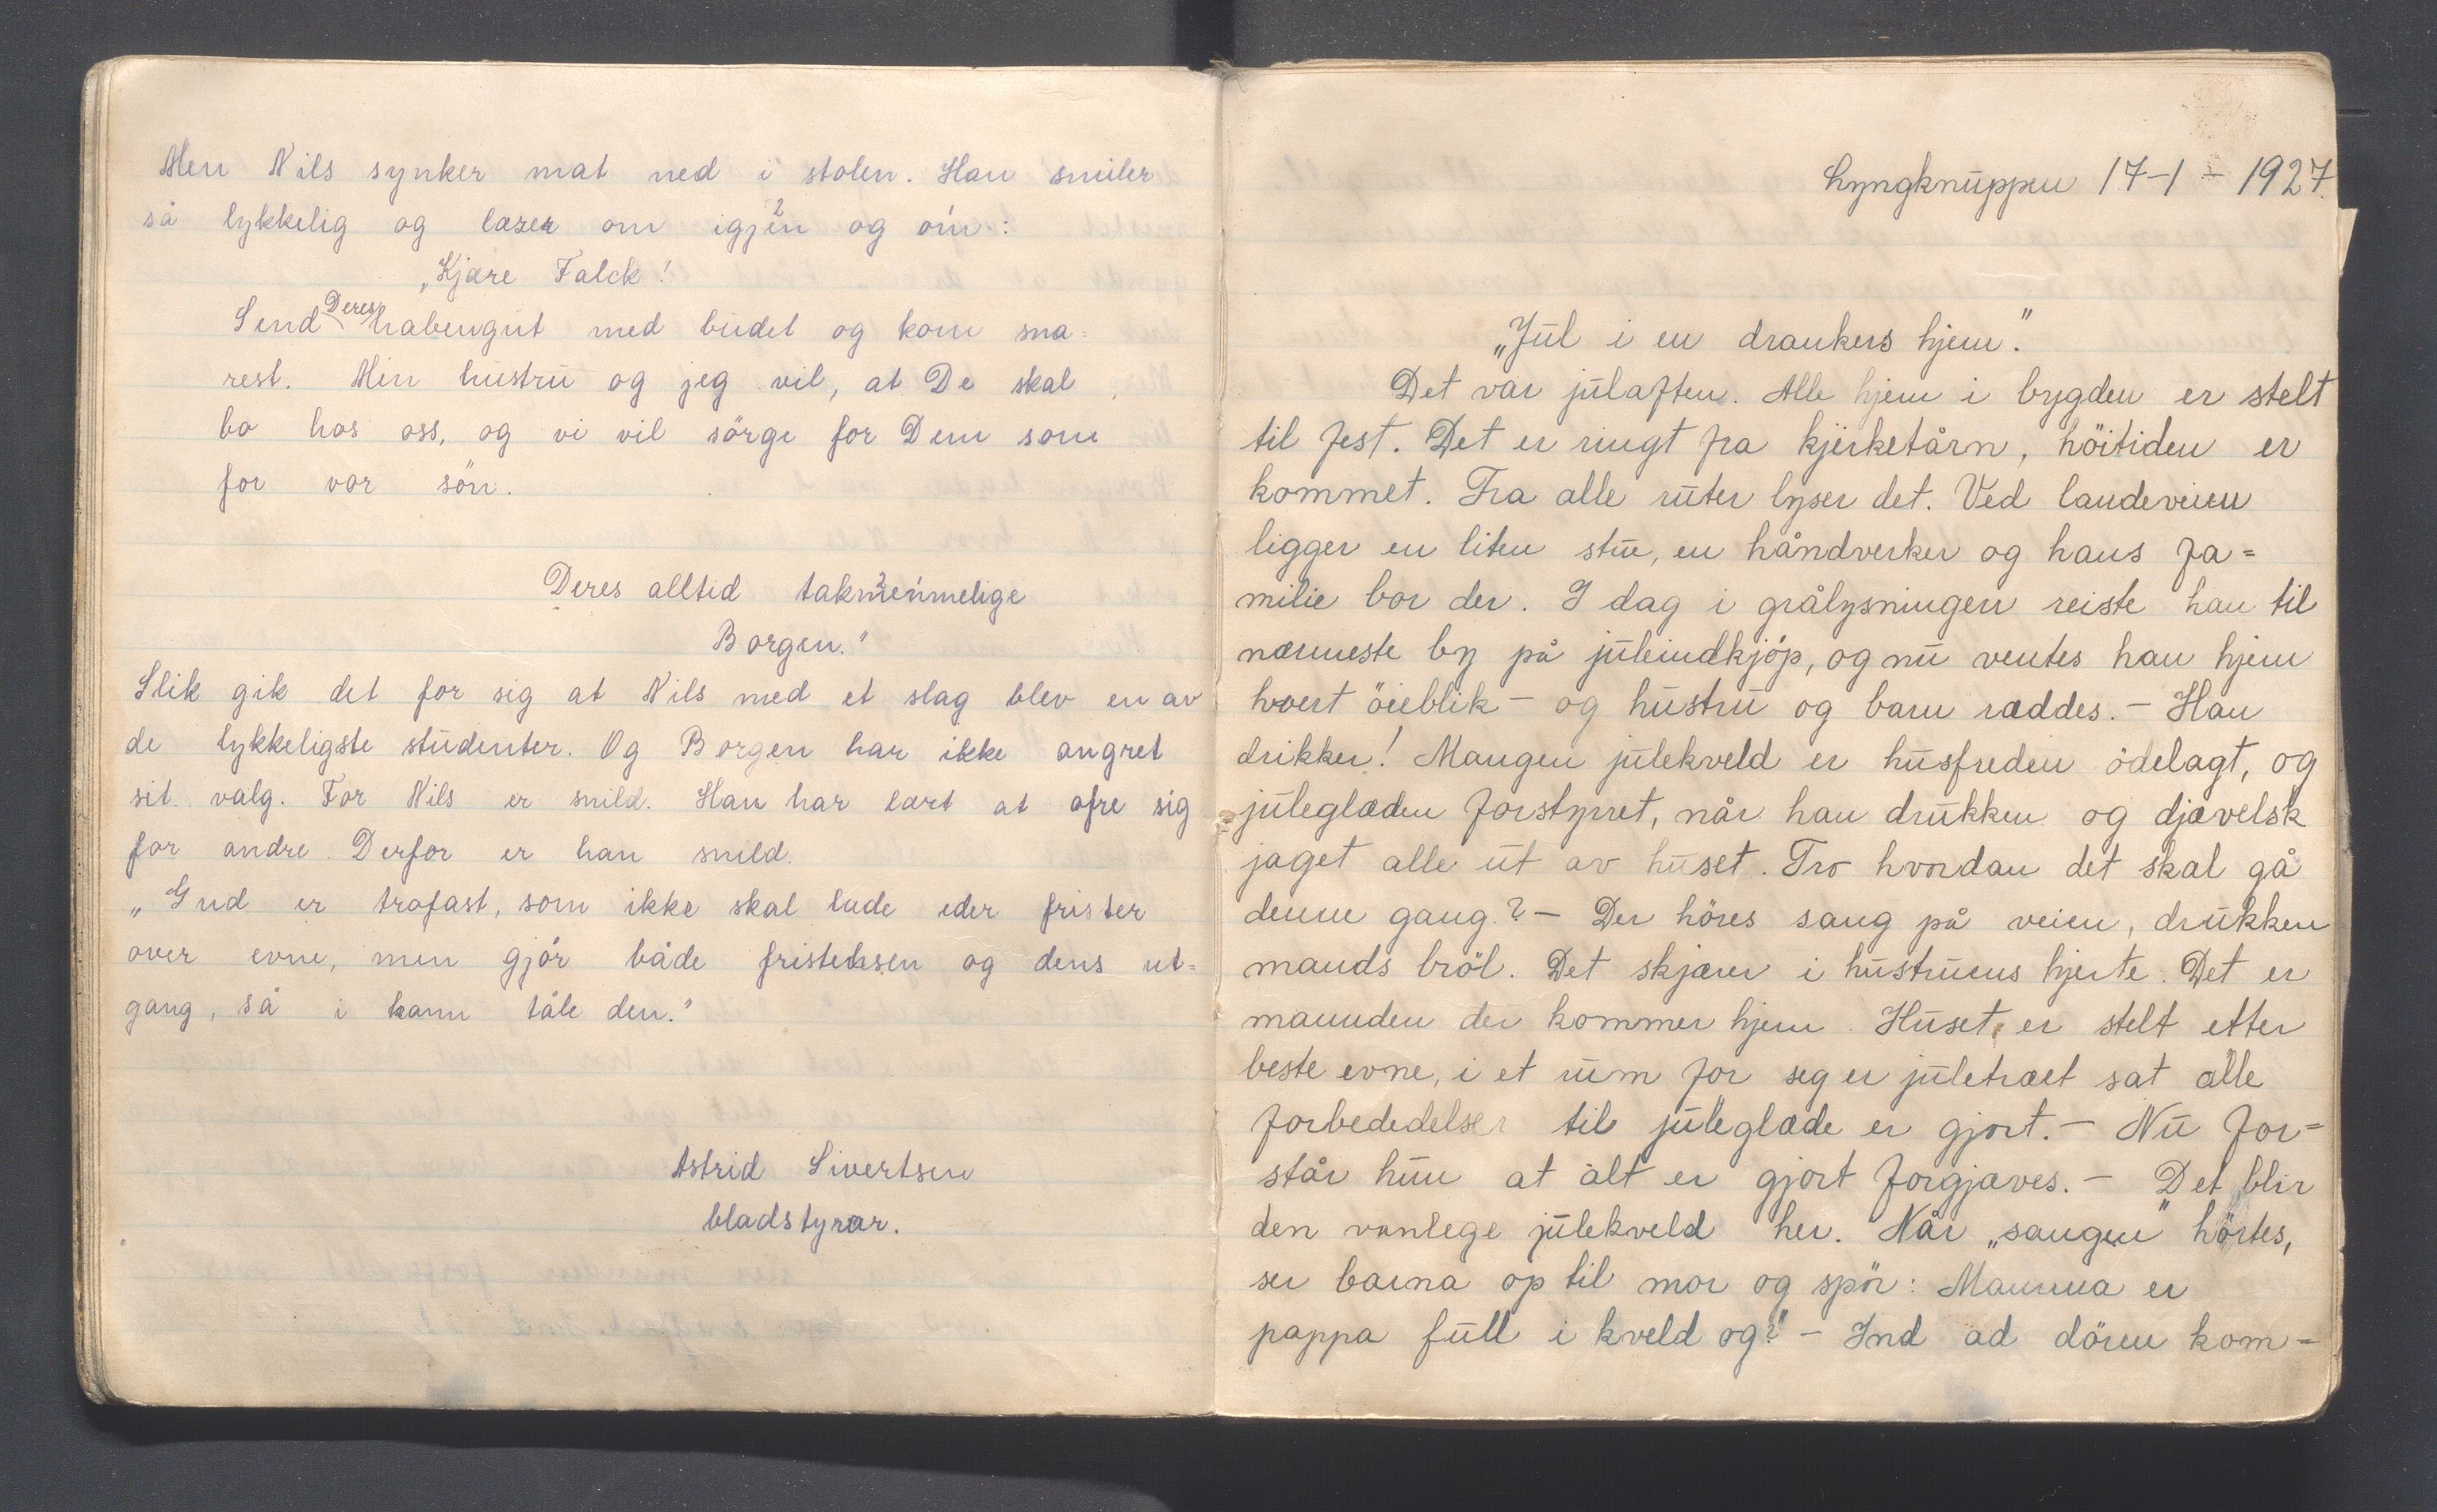 Men Nils synker mat ned i stolen. Han smiler
så lykkelig og læser om igjen og om:
„Kjære Falck!
Send Deres habengut med budet og kom sna-
rest. Min hustru og jeg vil, at De skal
bo hos oss, og vi vil sörge for Dem som
for vor sön.
Deres alltid taknemmelige
Borgen."
Slik gik det for sig at Nils med et slag blev en av
de lykkeligste studenter. Og Borgen har ikke angret
sit valg. For Nils er snild. Han har lært at ofre sig
for andre. Derfor er han snild.
„Gud er trofast, som ikke skal lade eder frister
over evne, men gjör både fristelsen og dens ut=
gang, så i kann tåle den."
Astrid Sivertsen
bladstyrar.
Lyngknuppen 17-1-1927.
„Jul i en drankers hjem".
Det var julaften. Alle hjem i bygden er stelt
til fest. Det er ringt fra kjerketårn, höitiden er
kommet. Fra alle ruter lyser det. Ved landeveien
ligger en liten stue, en håndverker og hans fa=
milie bor der. I dag i grålysningen reiste han til
nærmeste by på juleindkjöp, og nu ventes han hjem
hvert öieblik - og hustru og barn ræddes. - Han
drikker! Mangen julekveld er husfreden ödelagt, og
juleglæden forstyrret, når han drukken og djævelsk
jaget alle ut av huset. Tro hvordan det skal gå
denne gang? - Der höres sang på veien, drukken
mands bröl. Det skjærer i hustruens hjerte. Det er
mannden der kommer hjem. Huset er stelt etter
beste evne, i et rum for seg er juletræet sat alle
forbededelser til juleglæde er gjort. - Nu for=
står hun at alt er gjort forgjæves. - Det blir
den vanlege julekveld her. Når „sangen" hörtes,
ser barna op til mor og spör: Mamma er
pappa full i kveld og?" - Ind ad dören kom=